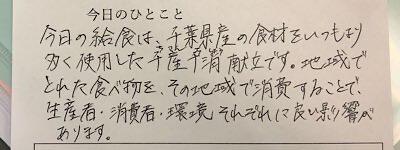 今日のひとこと
今日の給食は、千葉県産の食材をいつもより
多く使用した千産千消献立です。地域で
とれた食べ物を、その地域で消費することで、
生産者・消費者・環境それぞれに良い影響が
あります。